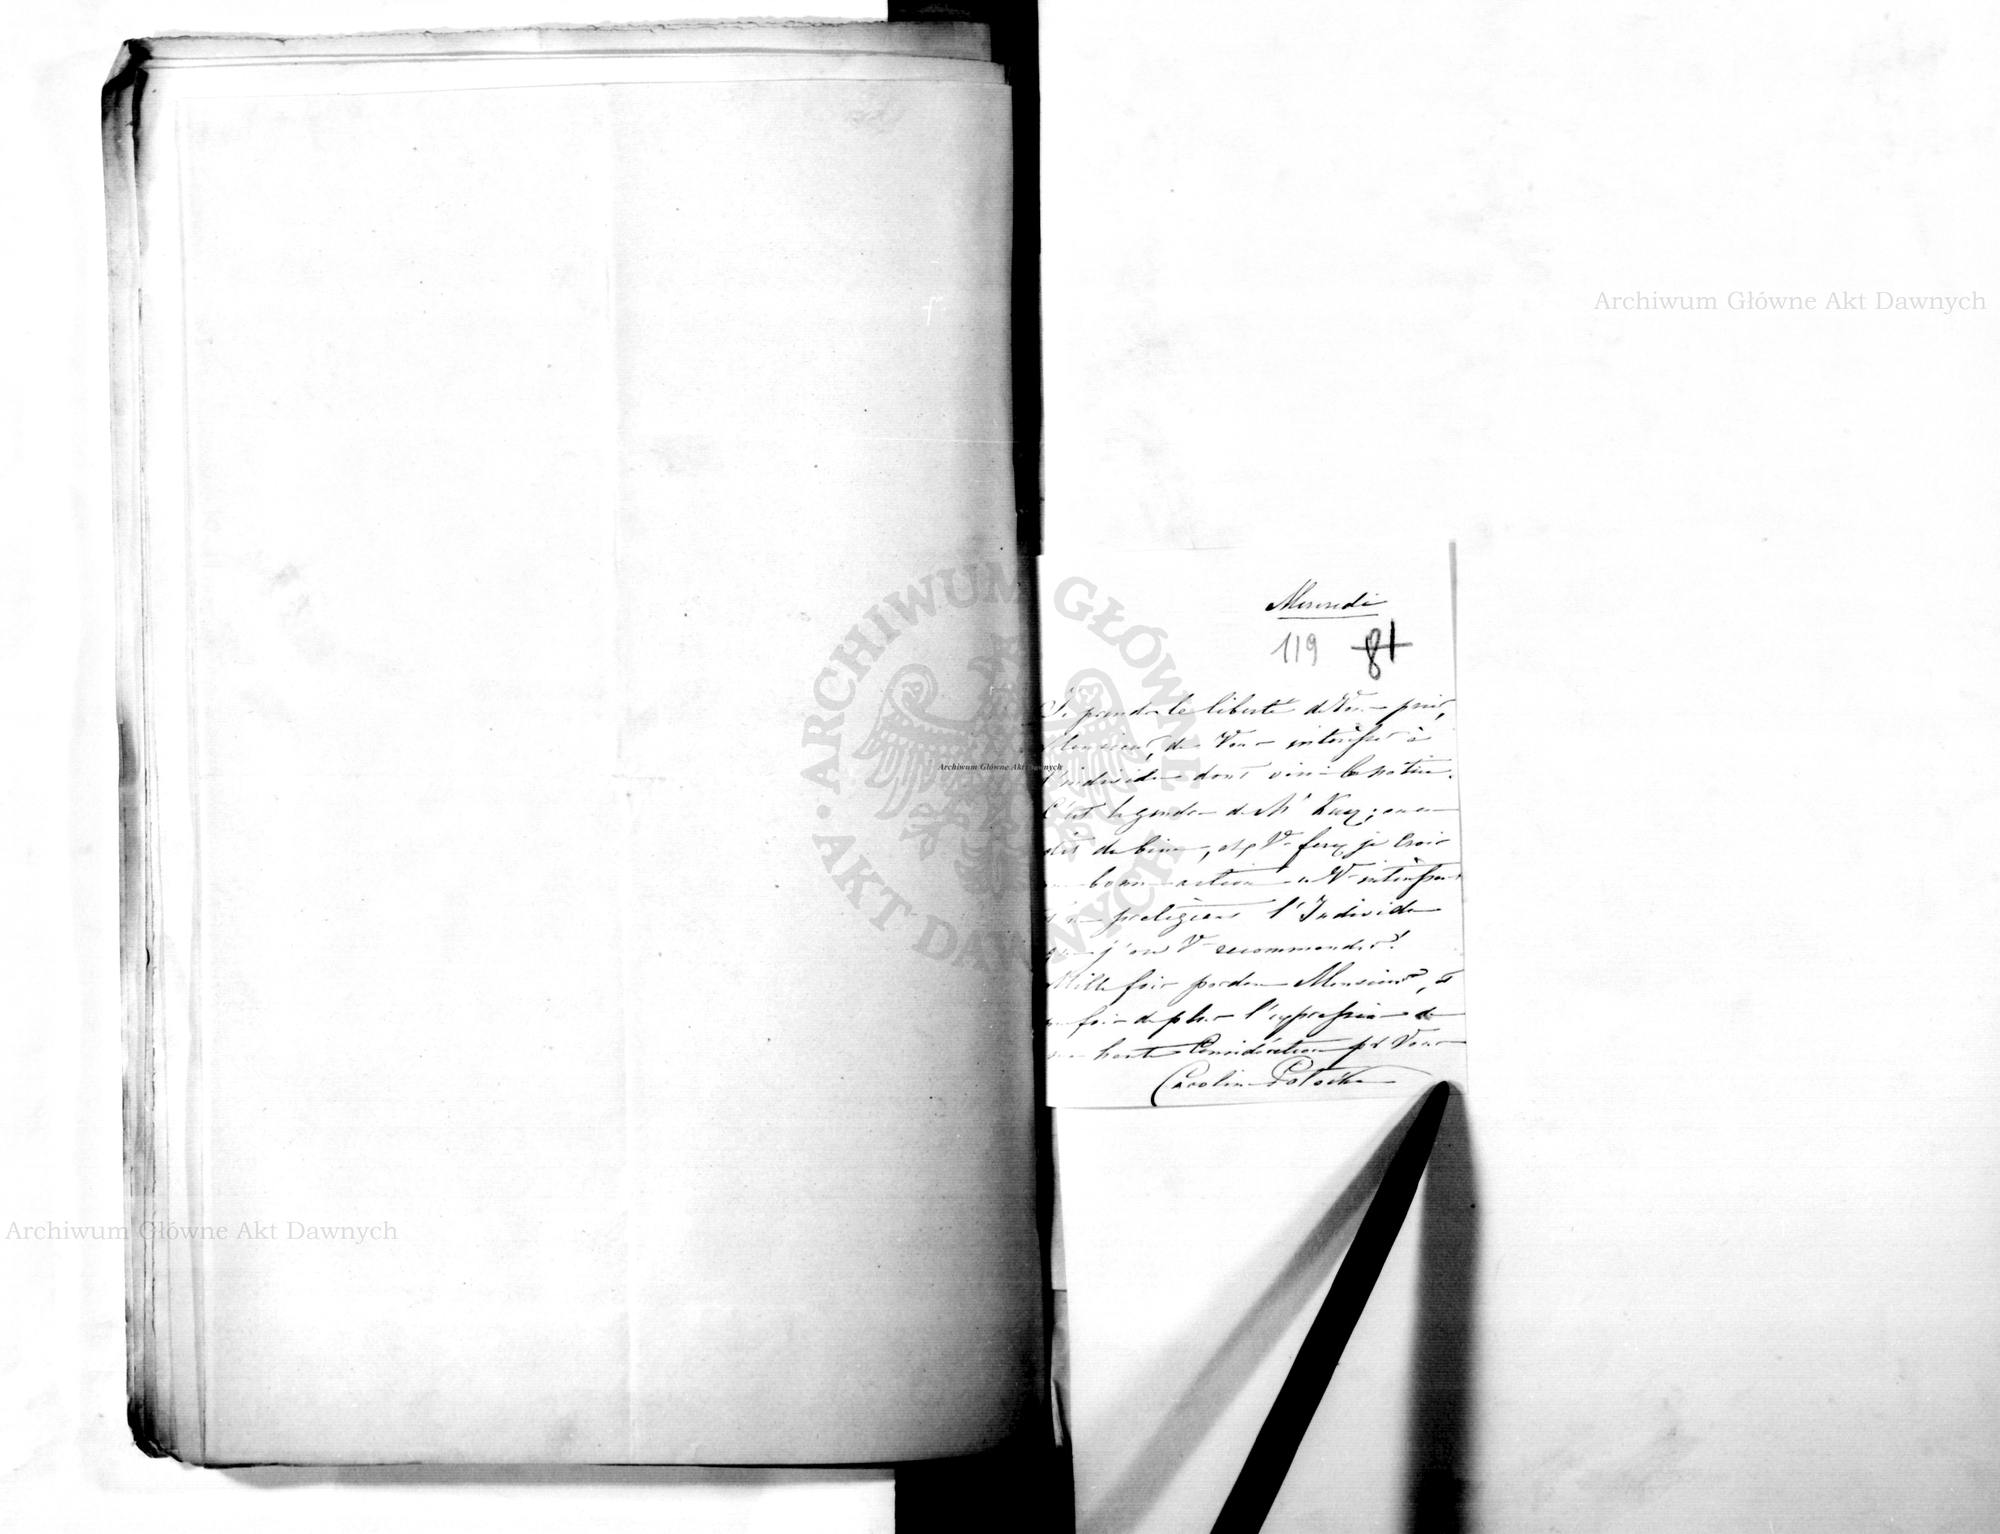 Mercredi
119 81
Je prends la liberté de Vous prier,
Monsieur, de Vous intéresser à
l'individu dont voici la notice.
C'est le gendre de Mr
dit du bien, et V. ferez je crois
bonne action en V. intéressant
protégeant l'Individu
que j'ose V. recommander!
Mille fois pardon Monsieur, et
une fois de plus l'expression de
ma haute Considération pr Vous
Caroline Potocka
ARCHIWUM GŁÓWNE AKT DAWNYCH
Archiwum Główne Akt Dawnych
Archiwum Główne Akt Dawnych
Archiwum Główne Akt Dawnych